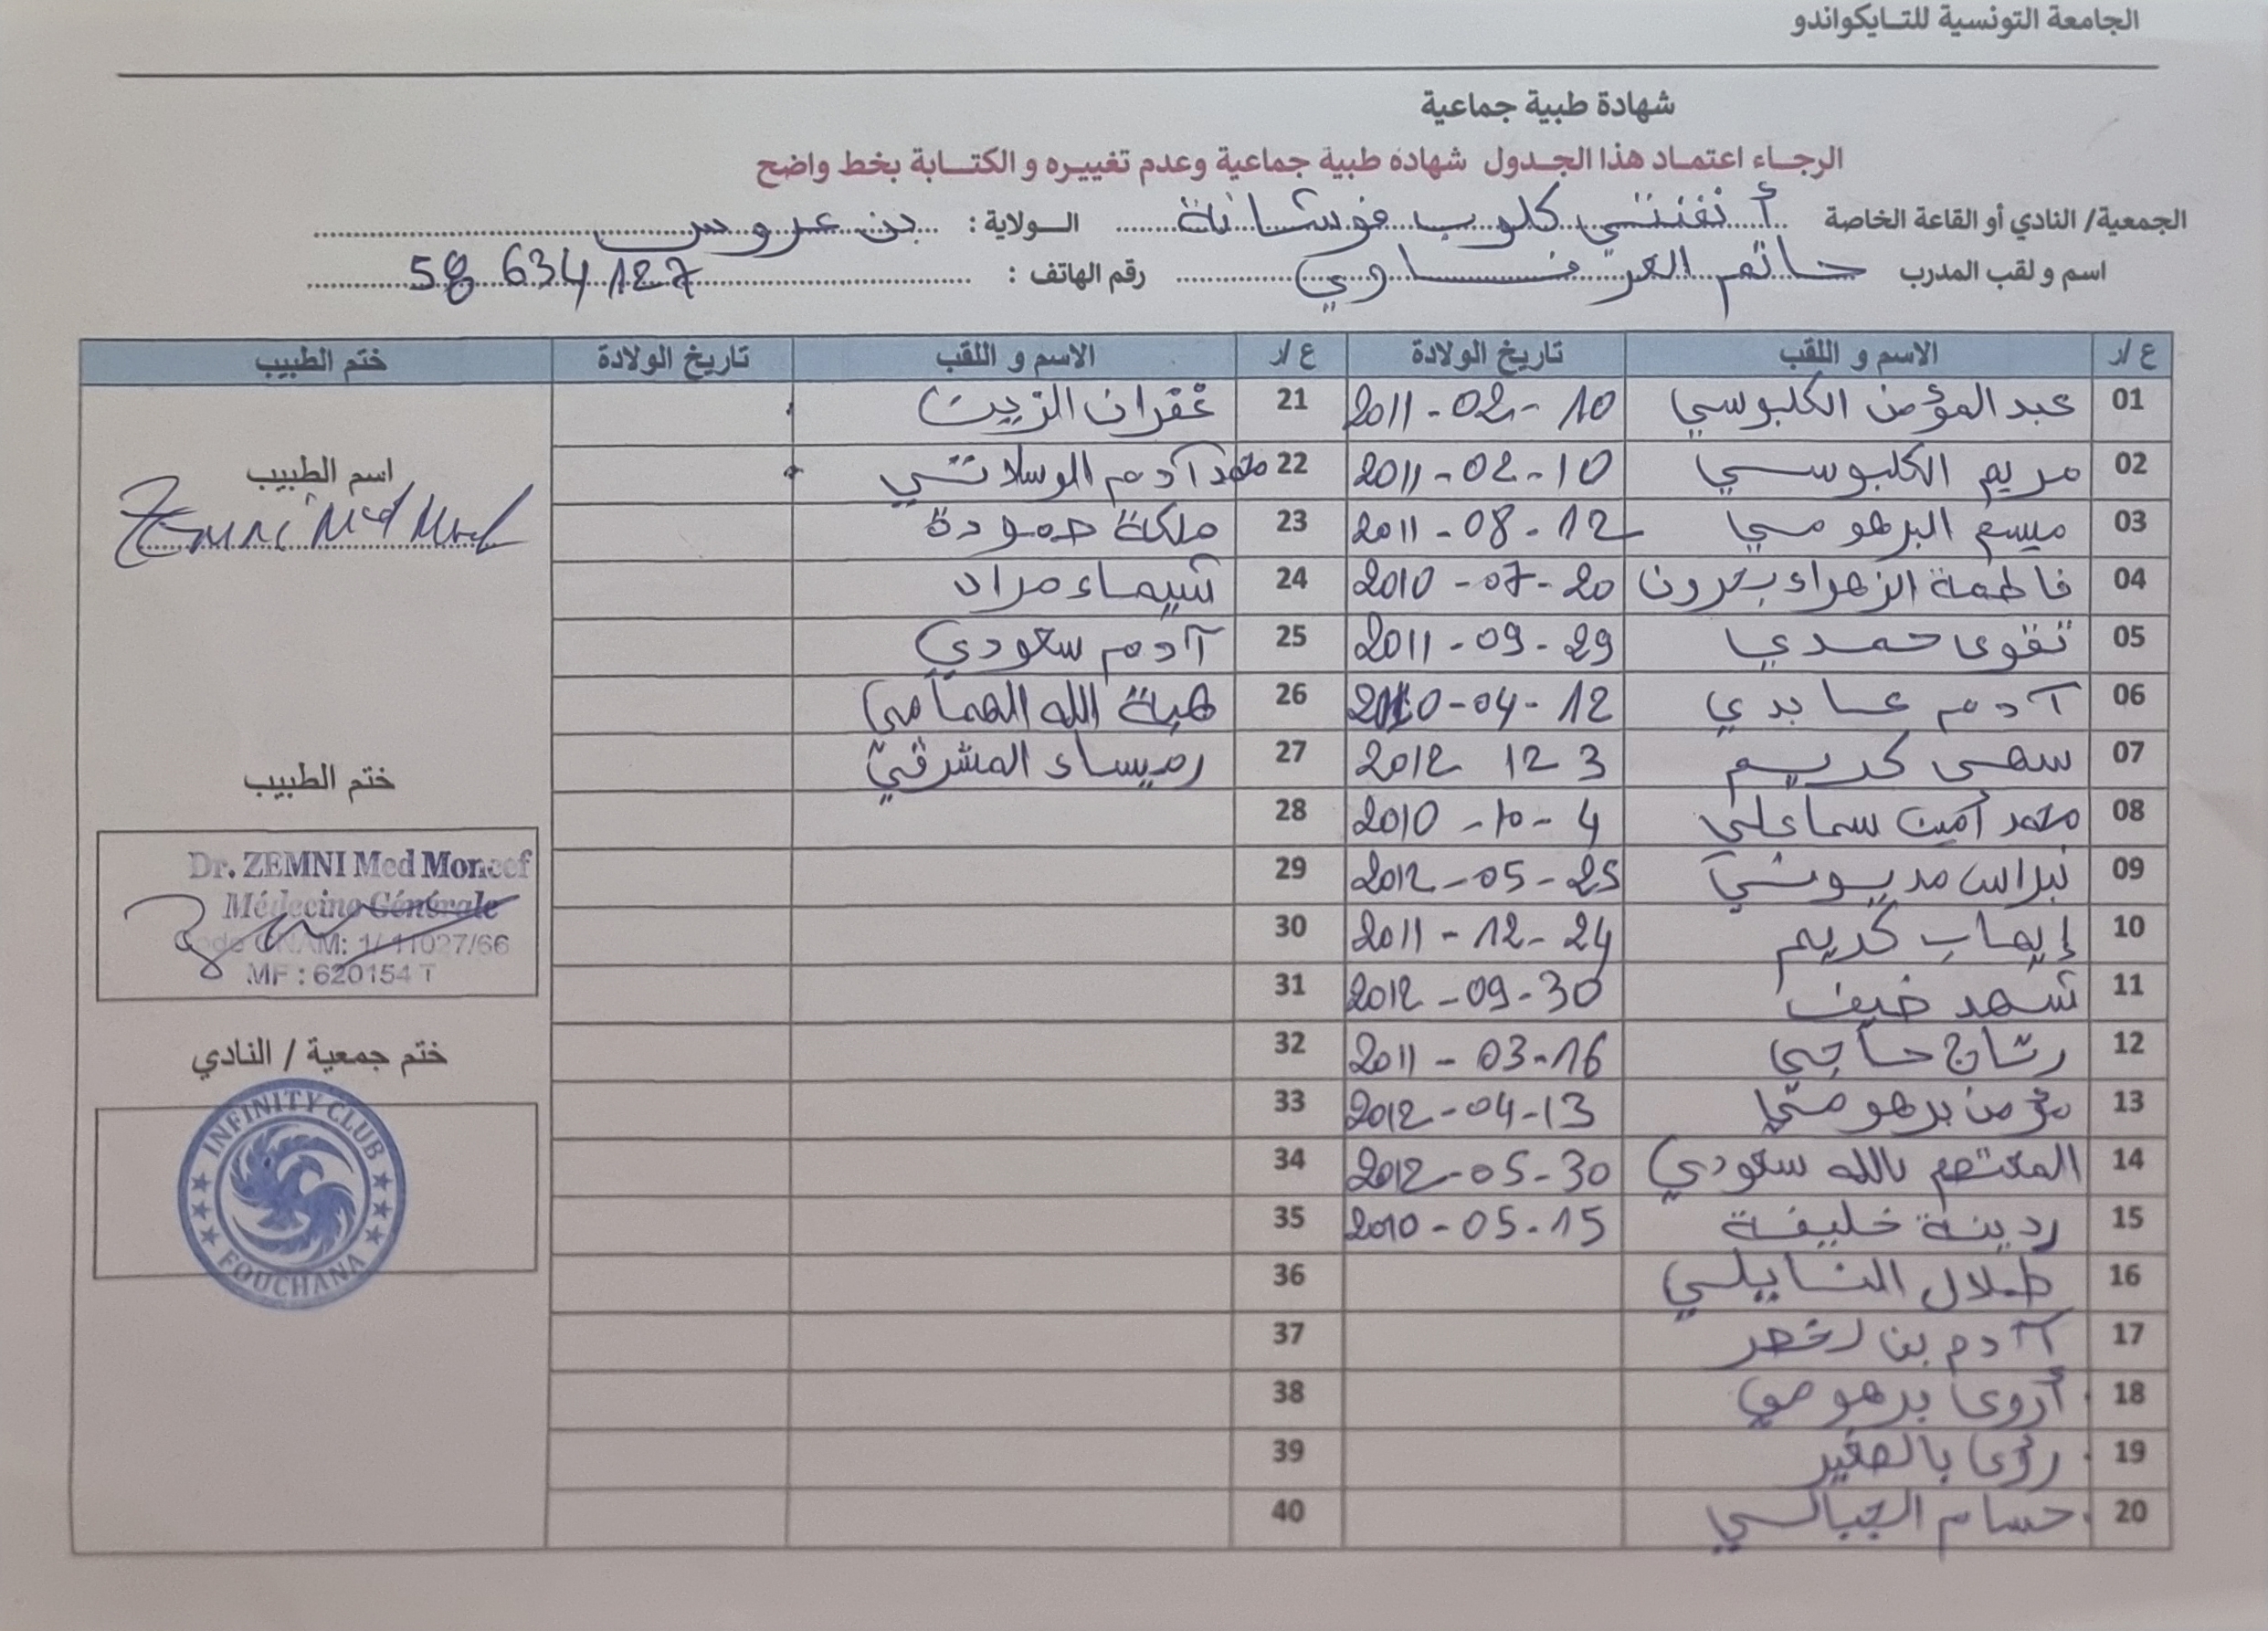 الجامعة التونسية للتايكواندو
شهادة طبية جماعية
الرجاء اعتماد هذا الجدول شهادة طبية جماعية وعدم تغييره و الكتابة بخط واضح
الجمعية/ النادي أو القاعة الخاصة أنفنتي كلوب فوشانة الولاية : بن عروس
اسم و لقب المدرب حاتم العرفاوي رقم الهاتف : 58 634 127
ع /ر الاسم و اللقب تاريخ الولادة ع /ر الاسم و اللقب تاريخ الولادة ختم الطبيب
01 عبد المؤمن الكلبوسي 10 - 02 - 2011 21 غفران الزيت
02 مريم الكلبوسي 10 - 02 - 2011 22 محمد آدم الوسلاتي
03 ميسم البرهومي 12 - 08 - 2011 23 ملكة حمودة
04 فاطمة الزهراء 20 - 07 - 2010 24 شيماء مراد
05 تقوى حمدي 29 - 09 - 2011 25 آدم سعودي
06 آدم عابدي 12 - 04 - 2010 26 هبة الله الهمامي
07 سهى كريم 3 12 2012 27 رميساء المشرقي
08 محمد أمين سماعلي 4 - 10 - 2010 28
09 نبراس مديوني 25 - 05 - 2012 29
10 إيهاب كريم 24 - 12 - 2011 30
11 شهد ضيف 30 - 09 - 2012 31
12 حاجي 16 - 03 - 2011 32
13 مؤمن برهومي 13 - 04 - 2012 33
14 المعتصم بالله سعودي 30 - 05 - 2012 34
15 ردينة خليفة 15 - 05 - 2010 35
16 طلال النايلي 36
17 آدم بن لخضر 37
18 أروى برهومي 38
19 رؤى بالصغير 39
20 حسام الجبالي 40
اسم الطبيب
Zemni Med Moncef
ختم الطبيب
Dr. ZEMNI Med Moncef
Médecine Générale
Code CNAM: 1/ 11027/66
MF : 620154 T
ختم جمعية / النادي
INFINITY CLUB
FOUCHANA